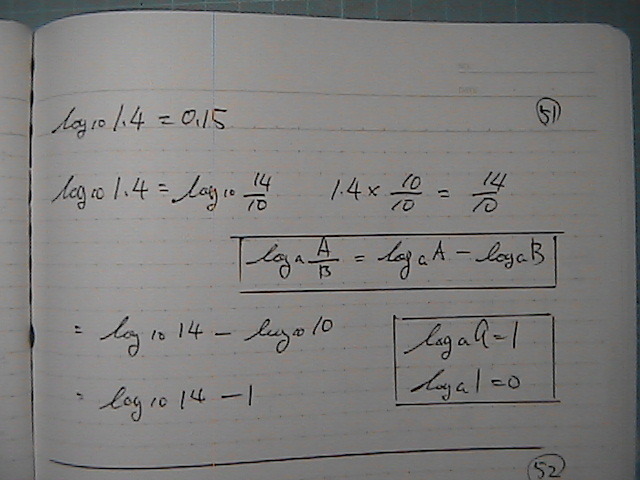 51
log₁₀1.4 = 0.15
log₁₀1.4 = log₁₀ 14/10   1.4 × 10/10 = 14/10
logₐ A/B = logₐA − logₐB
= log₁₀14 − log₁₀10
logₐa = 1
= log₁₀14 − 1
logₐ1 = 0
52